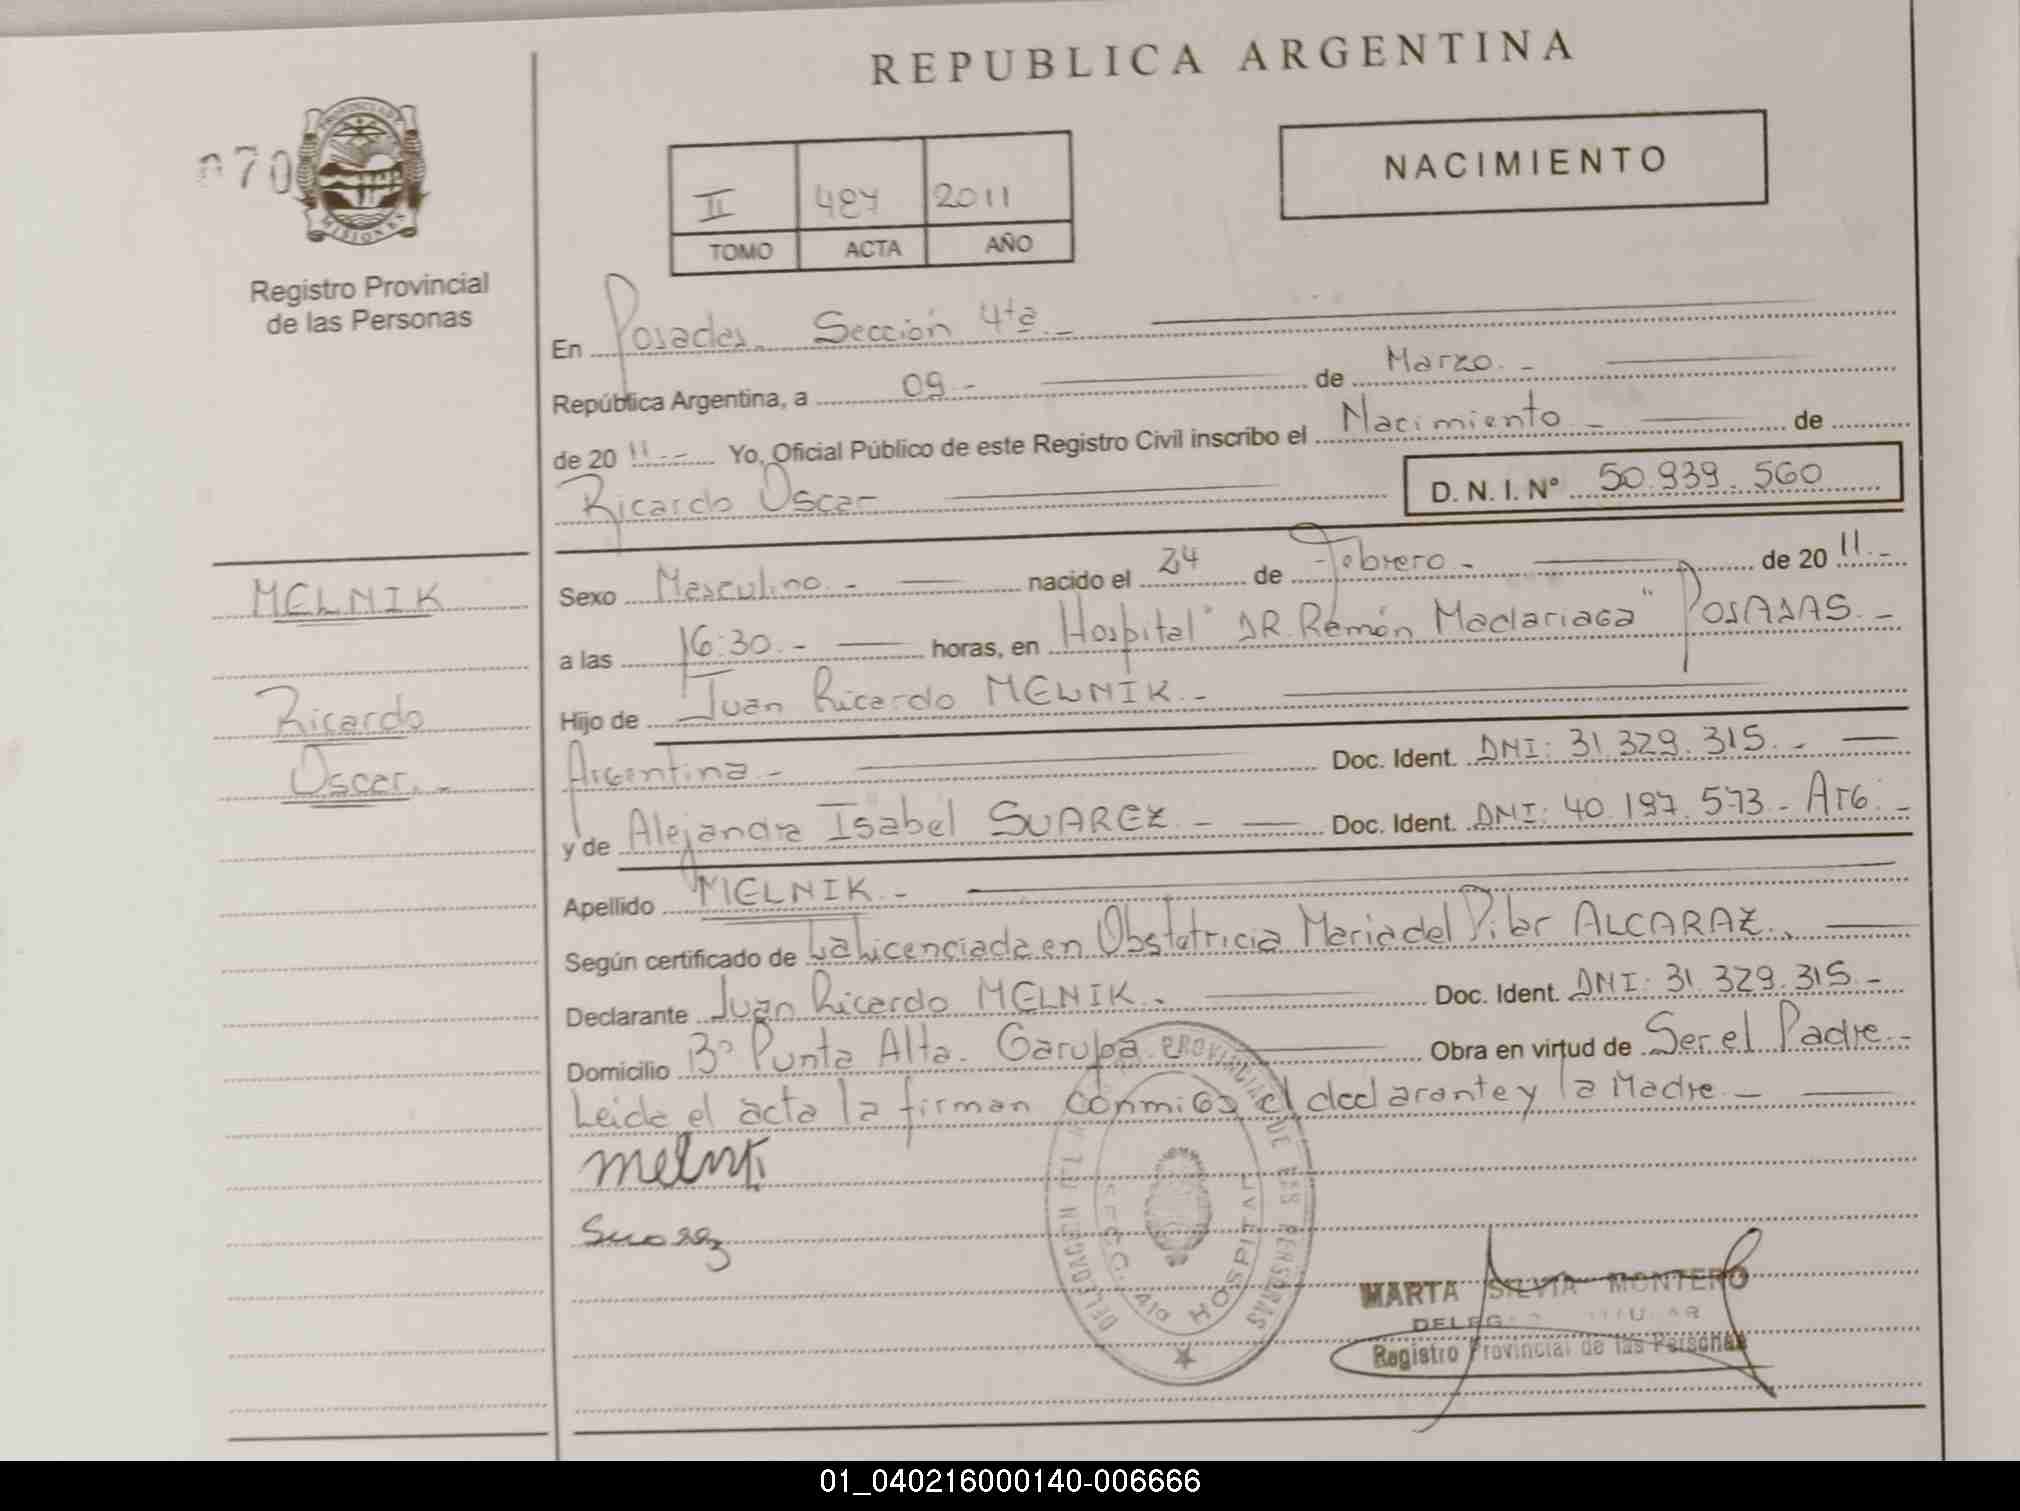 REPUBLICA ARGENTINA
070
PROVINCIA DE MISIONES
Registro Provincial
de las Personas
II 487 2011
TOMO ACTA AÑO
NACIMIENTO
En Posadas, Sección 4ta.-
República Argentina, a 09.- de Marzo.-
de 2011.- Yo, Oficial Público de este Registro Civil inscribo el Nacimiento - de
Ricardo Oscar D. N. I. Nº 50.939.560
MELNIK
Ricardo
Oscar.-
Sexo Masculino.- nacido el 24 de Febrero.- de 2011.-
a las 16:30.- horas, en Hospital "DR. Ramón Madariaga" POSADAS.-
Hijo de Juan Ricardo MELNIK.-
Argentina.- Doc. Ident. DNI: 31.329.315.-
y de Alejandra Isabel SUAREZ.- Doc. Ident. DNI: 40.197.573.- Arg.-
Apellido MELNIK.-
Según certificado de La Licenciada en Obstetricia Maria del Pilar ALCARAZ.-
Declarante Juan Ricardo MELNIK.- Doc. Ident. DNI: 31.329.315.-
Domicilio Bº Punta Alta. Garupa Obra en virtud de Ser el Padre.-
Leida el acta la firman conmigo el declarante y la Madre.-
Melnik
Suarez
PROVINCIAL DE LAS PERSONAS
HOSPITAL
MARTA SILVIA MONTERO
Registro Provincial de las Personas
01_040216000140-006666